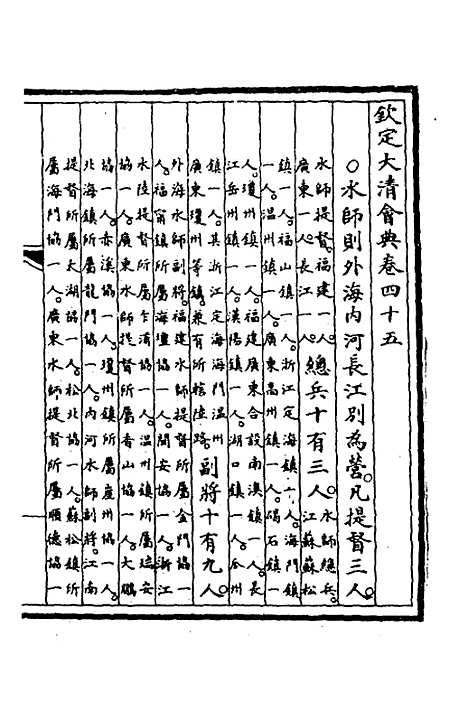 欽定大清會典卷四十五
○水師則外海內河長江別為營。凡提督三人。
水師提督。福建一人。
廣東一人。長江一人。
總兵十有三人。
水師總兵。
江蘇蘇松
鎮一人。福山鎮一人。浙江定海鎮一人。海門鎮
一人。溫州鎮一人。廣東高州鎮一人。碣石鎮一
人。瓊州鎮一人。福建廣東合設南澳鎮一人。長
江岳州鎮一人。漢陽鎮一人。湖口鎮一人。瓜州
鎮一人。其浙江定海海門溫州
廣東瓊州等鎮兼有所轄陸路。
副將十有九人。
外海水師副將。福建水師提督所屬金門協一
人。福寧鎮所屬海壇協一人。閩安協一人。浙江
水陸提督所屬乍浦協一人。溫州鎮所屬瑞安
協一人。廣東水師提督所屬香山協一人。大鵬
協一人。赤溪協一人。瓊州鎮所屬崖州協一人。
北海鎮所屬龍門協一人。內河水師副將。江南
提督所屬太湖協一人。松北協一人。蘇松鎮所
屬海門協一人。廣東水師提督所屬順德協一